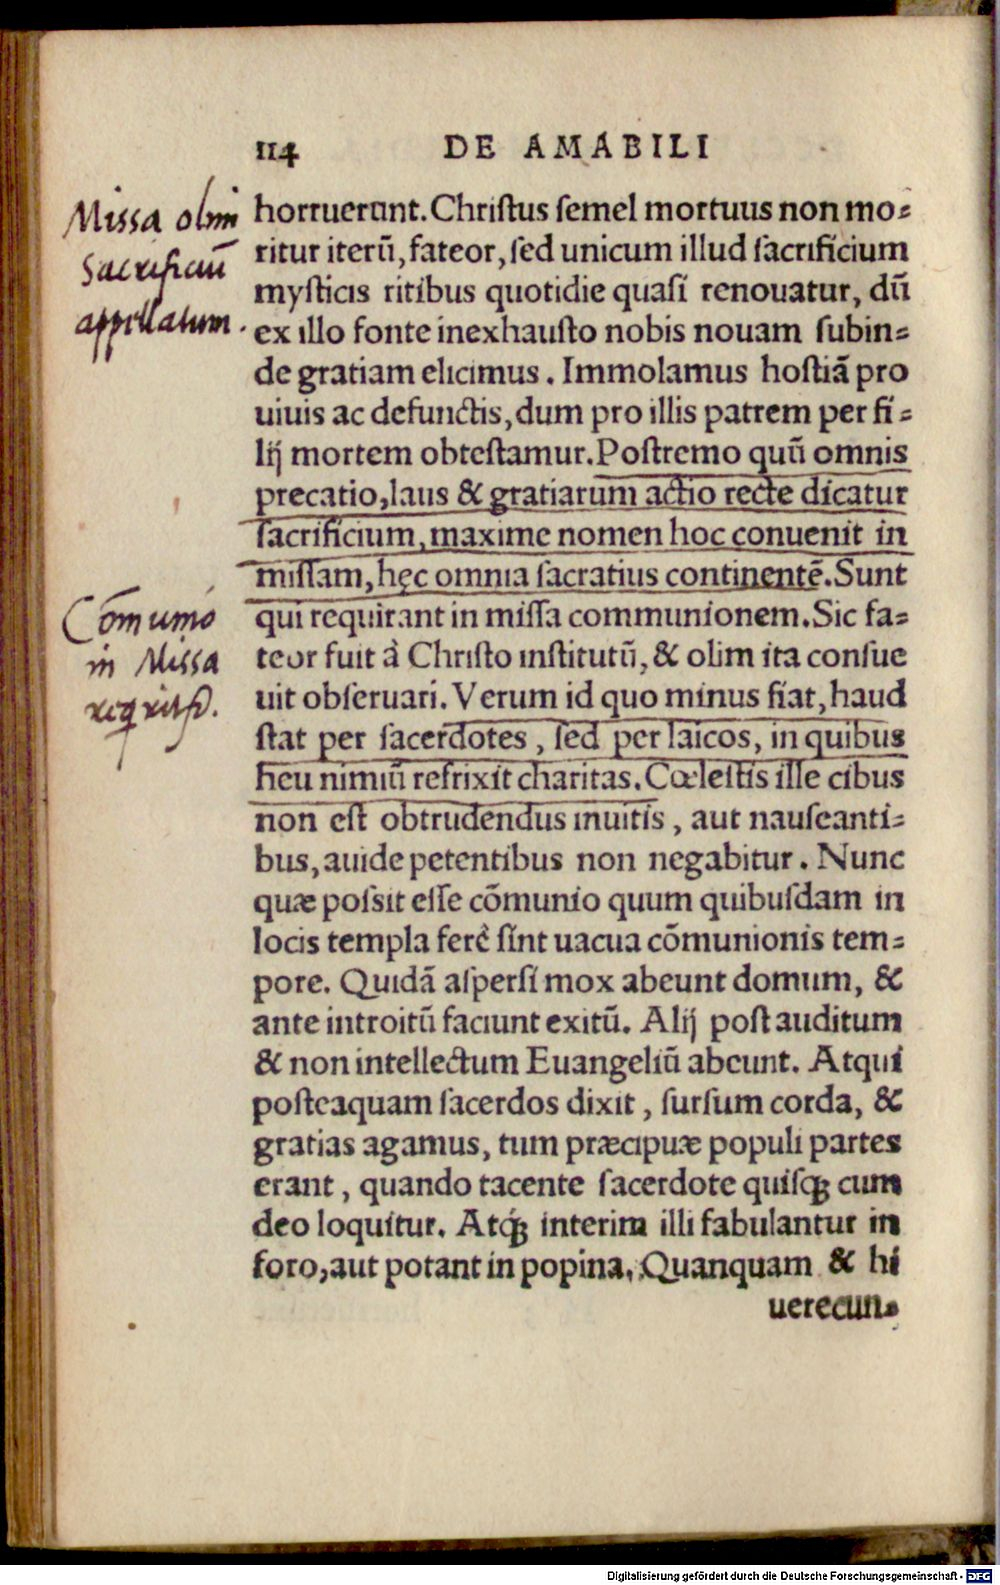 114 DE AMABILI
horruerunt. Christus semel mortuus non mo=
ritur iterũ, fateor, sed unicum illud sacrificium
mysticis ritibus quotidie quasi renouatur, dũ
ex illo fonte inexhausto nobis nouam subin=
de gratiam elicimus. Immolamus hostiã pro
uiuis ac defunctis, dum pro illis patrem per fi=
lij mortem obtestamur. Postremo quũ omnis
precatio, laus & gratiarum actio recte dicatur
sacrificium, maxime nomen hoc conuenit in
missam, hęc omnia sacratius continentẽ. Sunt
qui requirant in missa communionem. Sic fa=
teor fuit à Christo institutũ, & olim ita consue
uit obseruari. Verum id quo minus fiat, haud
stat per sacerdotes, sed per laicos, in quibus
heu nimiũ refrixit charitas. Cœlestis iste cibus
non est obtrudendus inuitis, aut nauseanti=
bus, auide petentibus non negabitur. Nunc
quæ possit esse cõmunio quum quibusdam in
locis templa ferè sint uacua cõmunionis tem=
pore. Quidã aspersi mox abeunt domum, &
ante introitũ faciunt exitũ. Alij post auditum
& non intellectum Euangeliũ abeunt. Atqui
posteaquam sacerdos dixit, sursum corda, &
gratias agamus, tum præcipuæ populi partes
erant, quando tacente sacerdote quisqꝫ cum
deo loquitur. Atqꝫ interim illi fabulantur in
foro, aut potant in popina. Quanquam & hi
uerecun=
Missa olim
Sacrificiũ
appellatum.
Cõmunio
in Missa
Digitalisierung gefördert durch die Deutsche Forschungsgemeinschaft - DFG